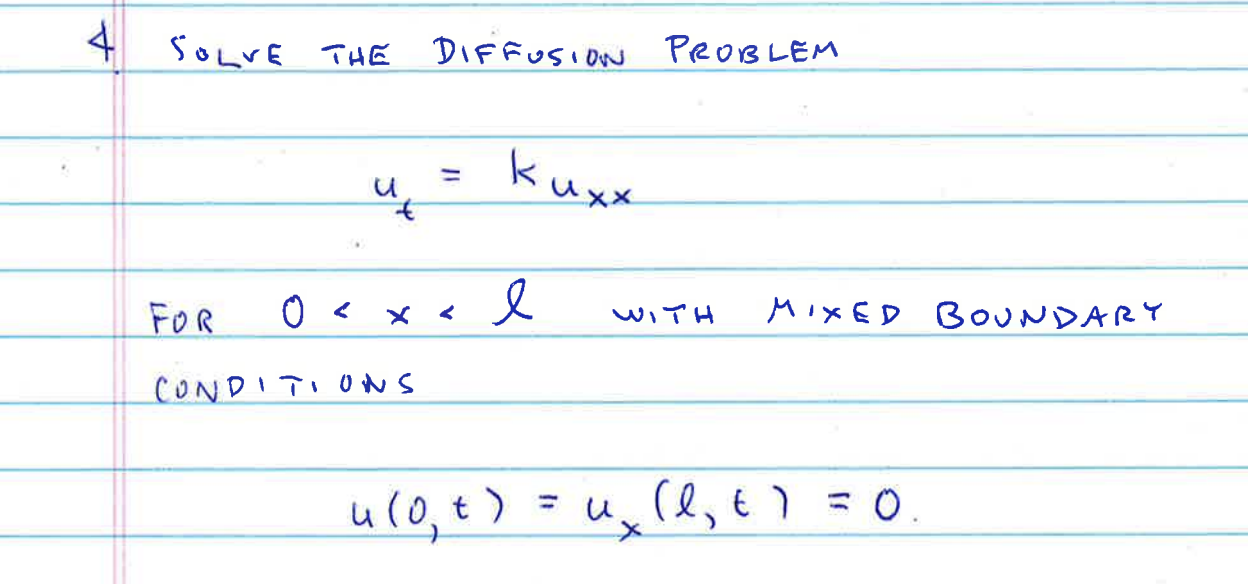 4. SOLVE THE DIFFUSION PROBLEM
u_t = k u_xx
FOR 0 < x < l WITH MIXED BOUNDARY
CONDITIONS
u(0,t) = u_x(l,t) = 0.